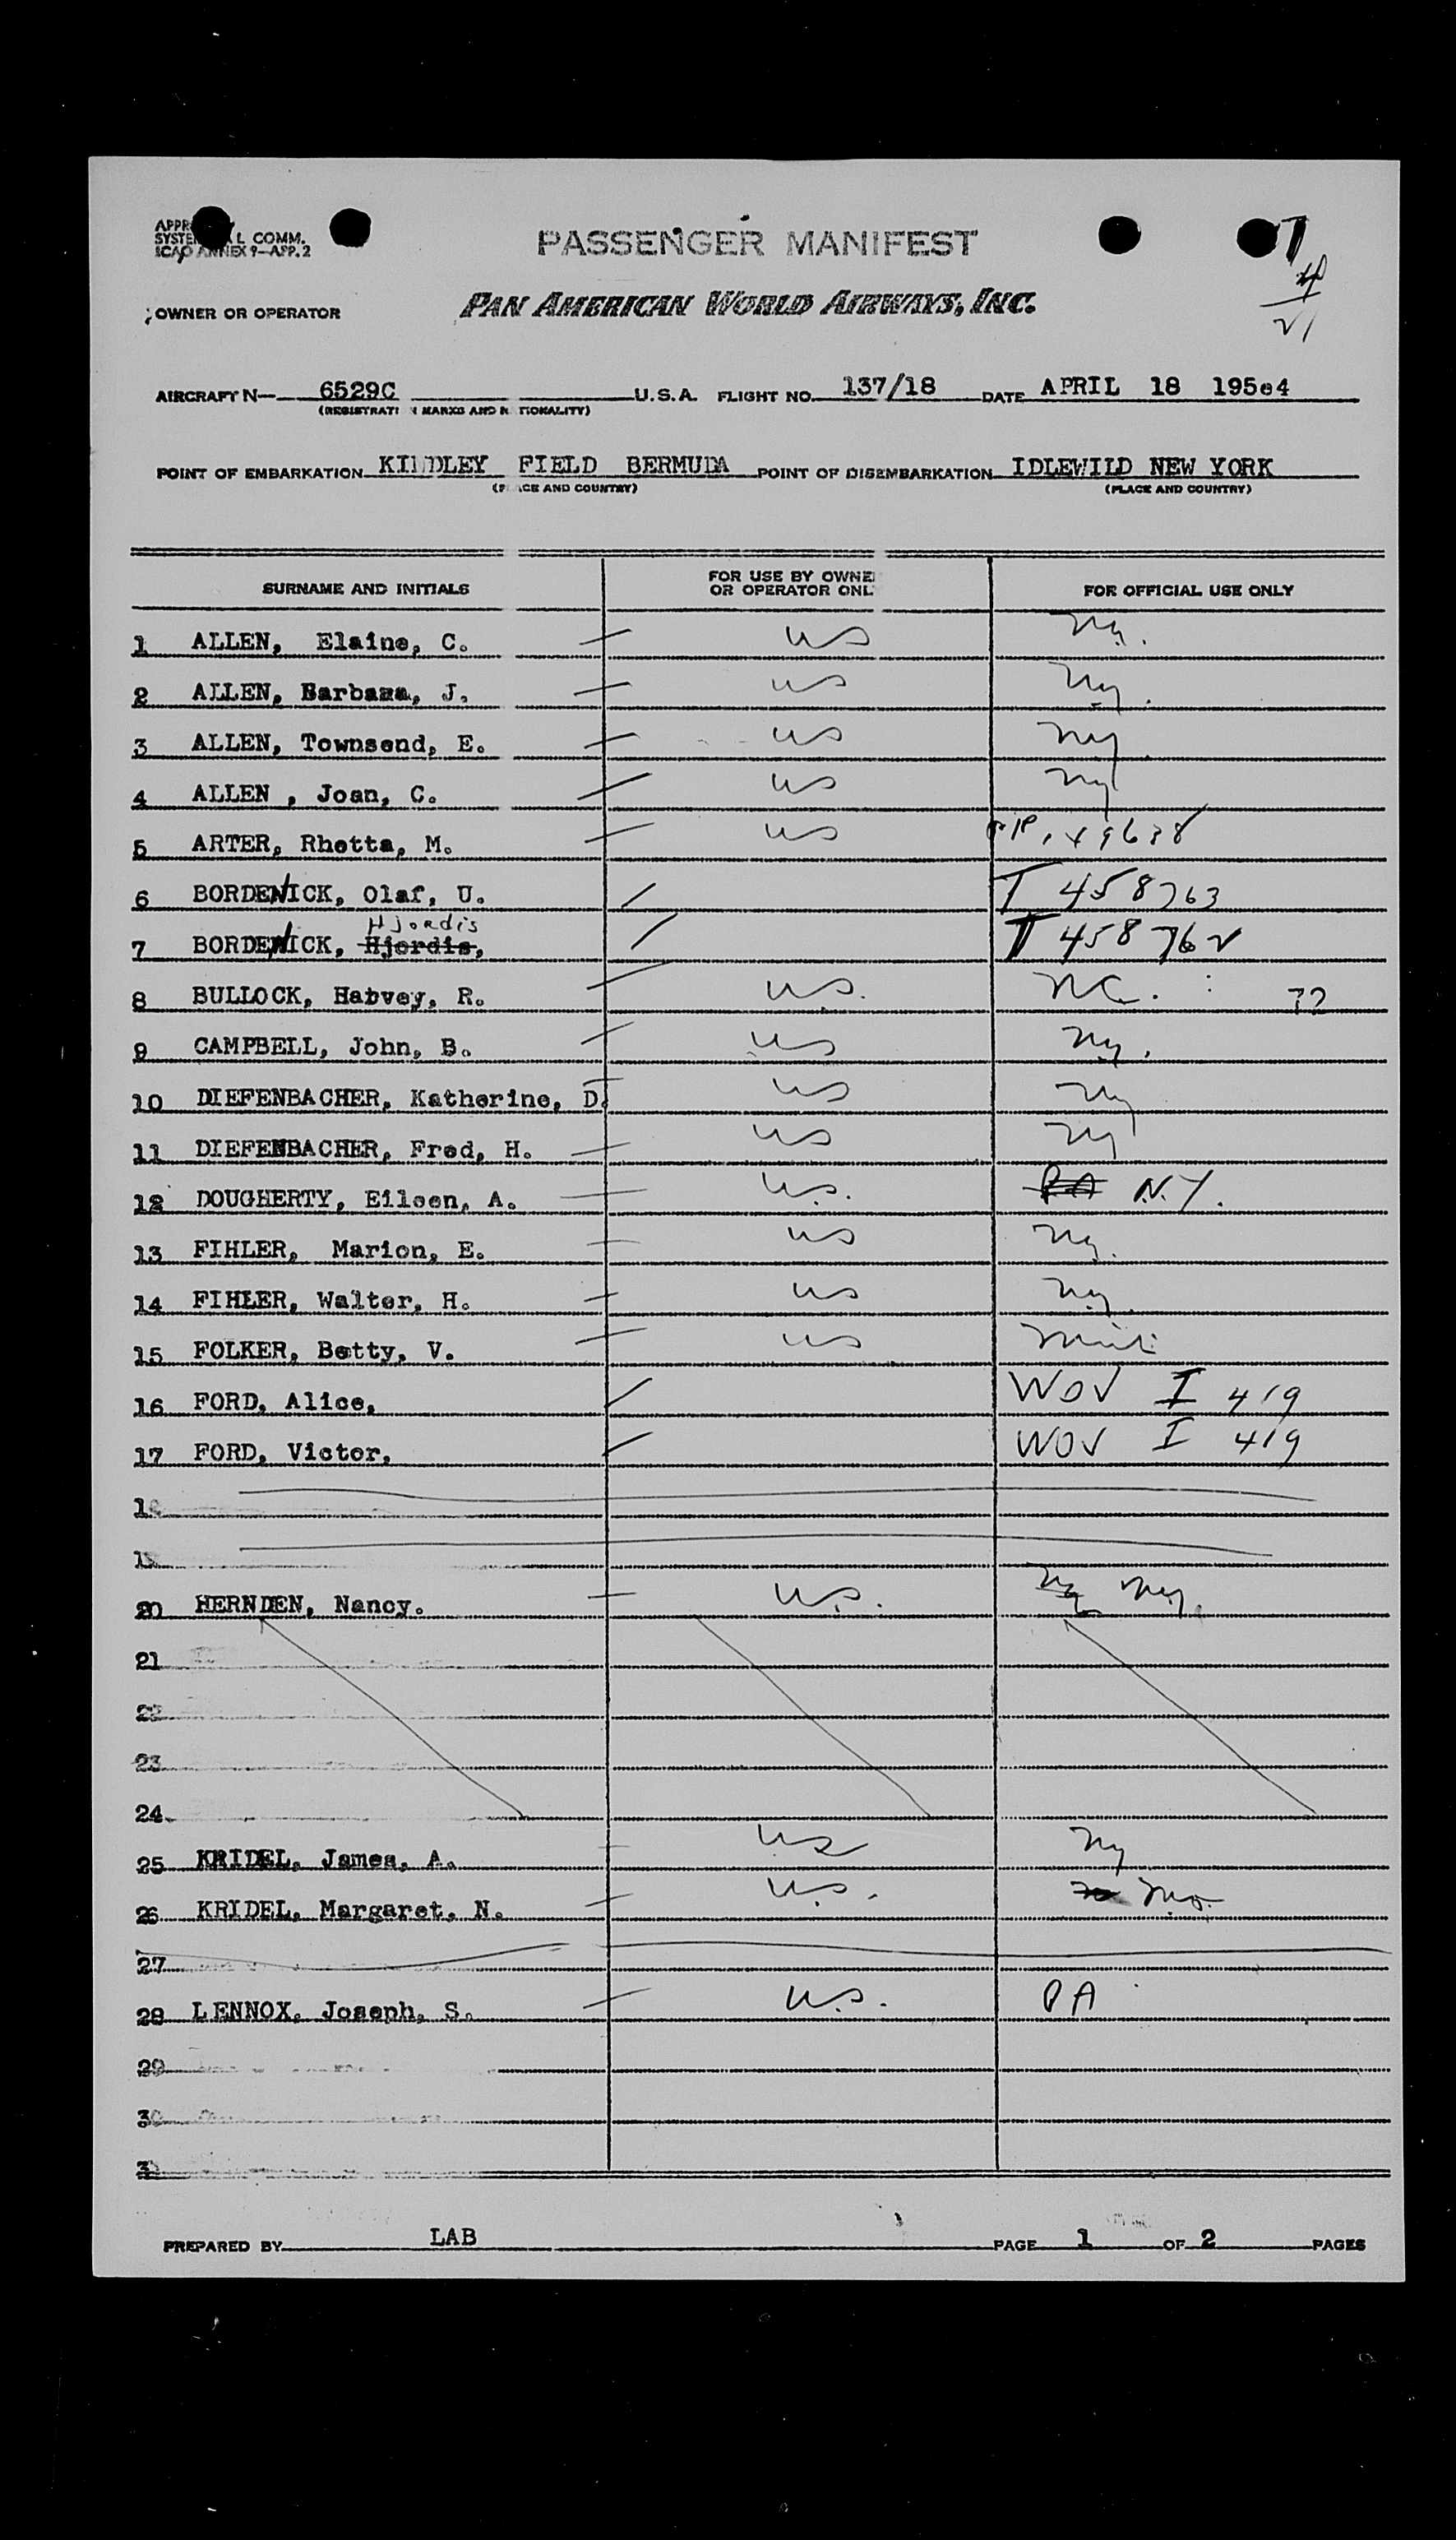 PASSENGER MANIFEST
L COMM.
ICAO ANNEX 9—APP. 2
OWNER OR OPERATOR PAN AMERICAN WORLD AIRWAYS, INC.
AIRCRAFT N— 6529C U.S.A. FLIGHT NO. 137/18 DATE APRIL 18 195e4
POINT OF EMBARKATION KINDLEY FIELD BERMUDA POINT OF DISEMBARKATION IDLEWILD NEW YORK
(PLACE AND COUNTRY) (PLACE AND COUNTRY)
SURNAME AND INITIALS FOR USE BY OWNER OR OPERATOR ONL FOR OFFICIAL USE ONLY
1 ALLEN, Elaine, C. US Ny.
2 ALLEN, Barbara, J. US Ny.
3 ALLEN, Townsend, E. US Ny
4 ALLEN , Joan, C. US Ny
5 ARTER, Rhetta, M. US
6 BORDEWICK, Olaf, U. T 458763
Hjordis
7 BORDEWICK, Hjordis, T 458762
8 BULLOCK, Habvey, R. U.S. NC.
9 CAMPBELL, John, B. US Ny.
10 DIEFENBACHER, Katherine, D. US Ny
11 DIEFENBACHER, Fred, H. US Ny
12 DOUGHERTY, Eileen, A. U.S. PA N.Y.
13 FIHLER, Marion, E. US Ny.
14 FIHLER, Walter, H. US Ny.
15 FOLKER, Betty, V. US
16 FORD, Alice, WOV I 419
17 FORD, Victor, WOV I 419
18
19
20 HERNDEN, Nancy. U.S. Ny Ny.
21
22
23
24
25 KRIDEL, James, A. US Ny
26 KRIDEL, Margaret, N. U.S. Mo.
27
28 LENNOX, Joseph, S. U.S. PA
29
30
PREPARED BY LAB PAGE 1 OF 2 PAGES